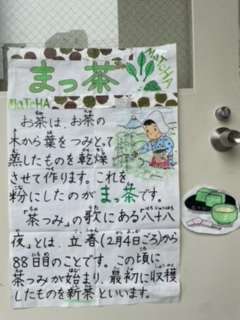 まっ茶
MATCHA
MATCHA
お茶は、お茶の
木から葉をつみとって
蒸したものを乾燥
させて作ります。これを
粉にしたのがまっ茶です。
「茶つみ」の歌にある八十八
夜」とは、立春(2月4日ごろ)から
88日目のことです。この頃に
茶つみが始まり、最初に収穫
したものを新茶といいます。